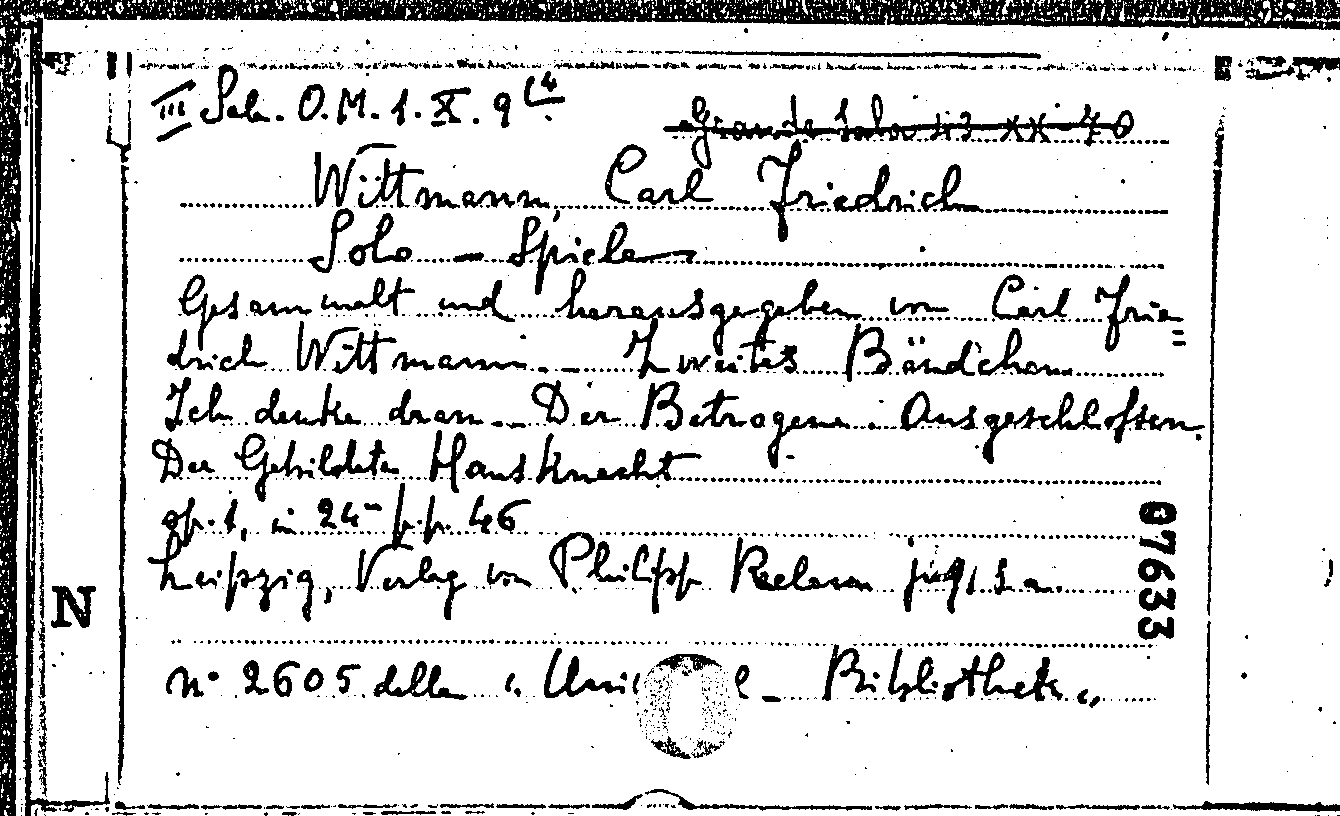 III Sala. O.M. 1. X. 9 14
Grande Sala 43 XX 70
Wittmann, Carl Friedrich
Solo - Spiele
Gesammelt und herausgegeben von Carl Frie=
drich Wittmann. - Zweites Bändchen
Ich denke dran. - Der Betrogene. Ausgeschlossen.
Der Gebildete Hausknecht
op. 1, in 24° p.p. 46
Leipzig, Verlag von Philipp Reclam jug, s. a.
N
07633
n° 2605 della " - Bibliothek "